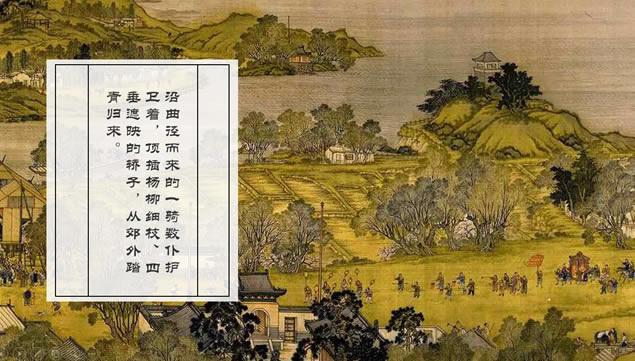 沿曲径而来的一骑数仆护
卫着，顶插杨柳细枝、四
垂遮映的轿子，从郊外踏
青归来。